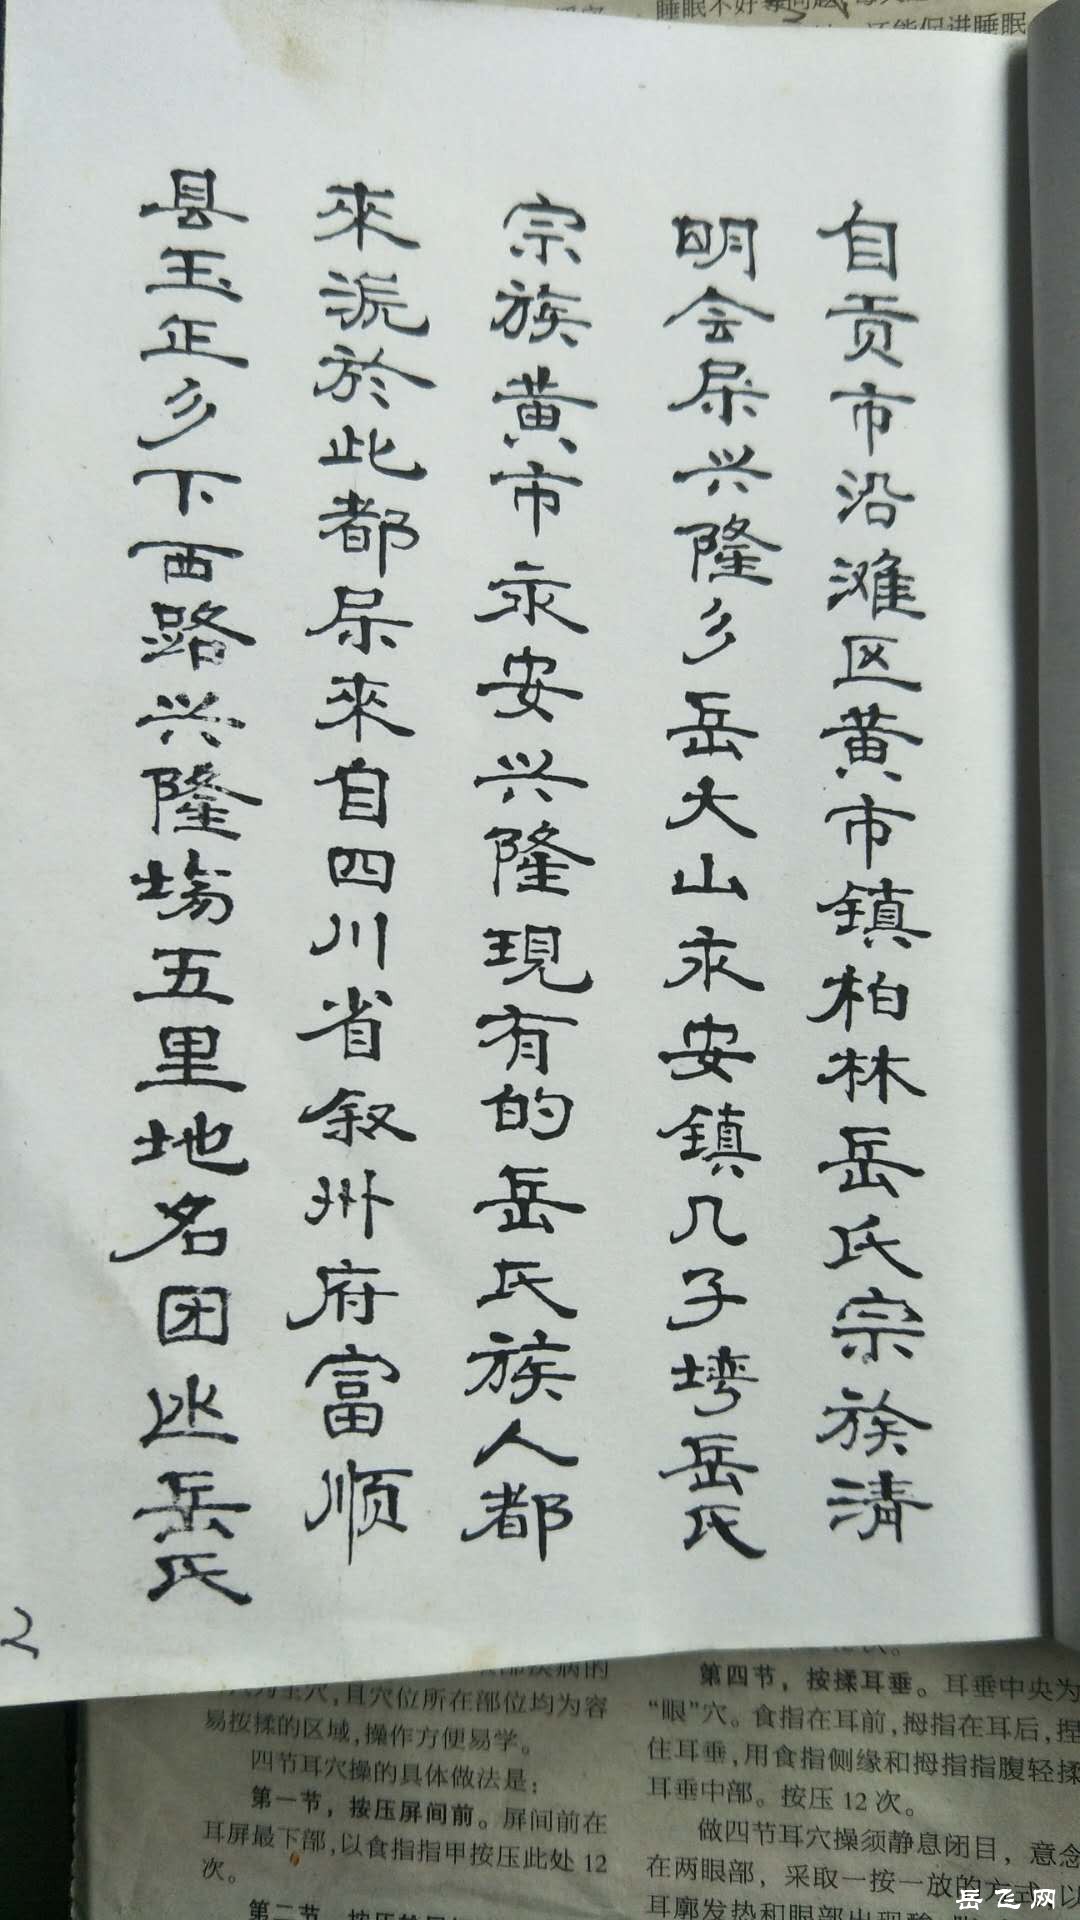 自贡市沿滩区黄市镇柏林岳氏宗族清
明会屎兴隆乡岳大山永安镇几子塆岳氏
宗族黄市永安兴隆現有的岳氏族人都
來派於此都屎來自四川省叙州府富顺
县玉正乡下西路兴隆塲五里地名团坵岳氏
2
睡眠
易按揉的区域，操作方便易学。
四节耳穴操的具体做法是：
第一节，按压屏间前。屏间前在
耳屏最下部，以食指指甲按压此处12
次。
第四节，按揉耳垂。耳垂中央为
“眼”穴。食指在耳前，拇指在耳后，捏
住耳垂，用食指侧缘和拇指指腹轻揉
耳垂中部。按压12次。
做四节耳穴操须静息闭目，意念
在两眼部，采取一按一放的方式，以
岳飞网